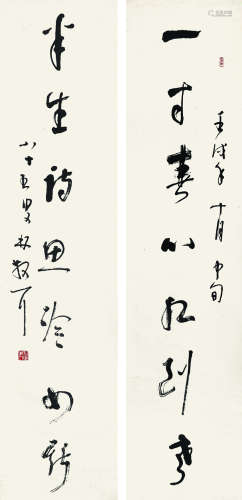 壬戌年十月中旬
一寸春心紅到
半生詩思冷如
八十五叟林散耳